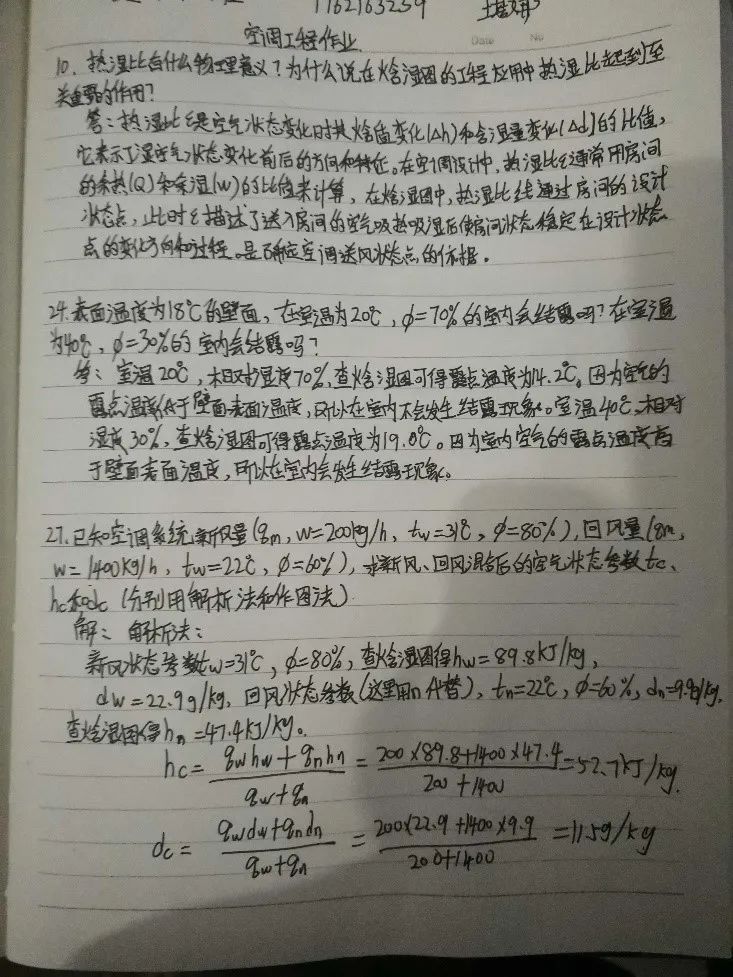 1162163259
空调工程作业
Date No
10. 热湿比有什么物理意义?为什么说在焓湿图的工程应用中热湿比起到至
关重要的作用?
答:热湿比ε是空气状态变化时其焓值变化(Δh)和含湿量变化(Δd)的比值,
它表示了湿空气状态变化前后的方向和特征。在空调设计中,热湿比ε通常用房间
的余热(Q)和余湿(W)的比值来计算,在焓湿图中,热湿比线通过房间的设计
状态点,此时ε描述了送入房间的空气吸热吸湿后使房间状态稳定在设计状态
点的变化方向和过程。是确定空调送风状态点的依据。
24. 表面温度为18℃的壁面,在室温为20℃,φ=70%的室内会结露吗?在室温
为40℃,φ=30%的室内会结露吗?
答:室温20℃,相对湿度70%,查焓湿图可得露点温度为14.2℃。因为空气的
露点温度低于壁面表面温度,所以在室内不会发生结露现象。室温40℃,相对
湿度30%,查焓湿图可得露点温度为19.0℃。因为室内空气的露点温度高
于壁面表面温度,所以在室内会发生结露现象。
27. 已知空调系统新风量(qm,w=200kg/h,tw=31℃,φ=80%),回风量(qm,
w=1400kg/h,tw=22℃,φ=60%),求新风、回风混合后的空气状态参数tc、
hc和dc(分别用解析法和作图法).
解:解析法:
新风状态参数tw=31℃,φ=80%,查焓湿图得hw=89.8kJ/kg,
dw=22.9g/kg.回风状态参数(这里用n代替),tn=22℃,φ=60%,dn=9.9g/kg,
查焓湿图得hn=47.4kJ/kg。
hc=(qwhw+qnhn)/(qw+qn)=(200×89.8+1400×47.4)/(200+1400)=52.7kJ/kg.
dc=(qwdw+qndn)/(qw+qn)=(200×22.9+1400×9.9)/(200+1400)=11.5g/kg